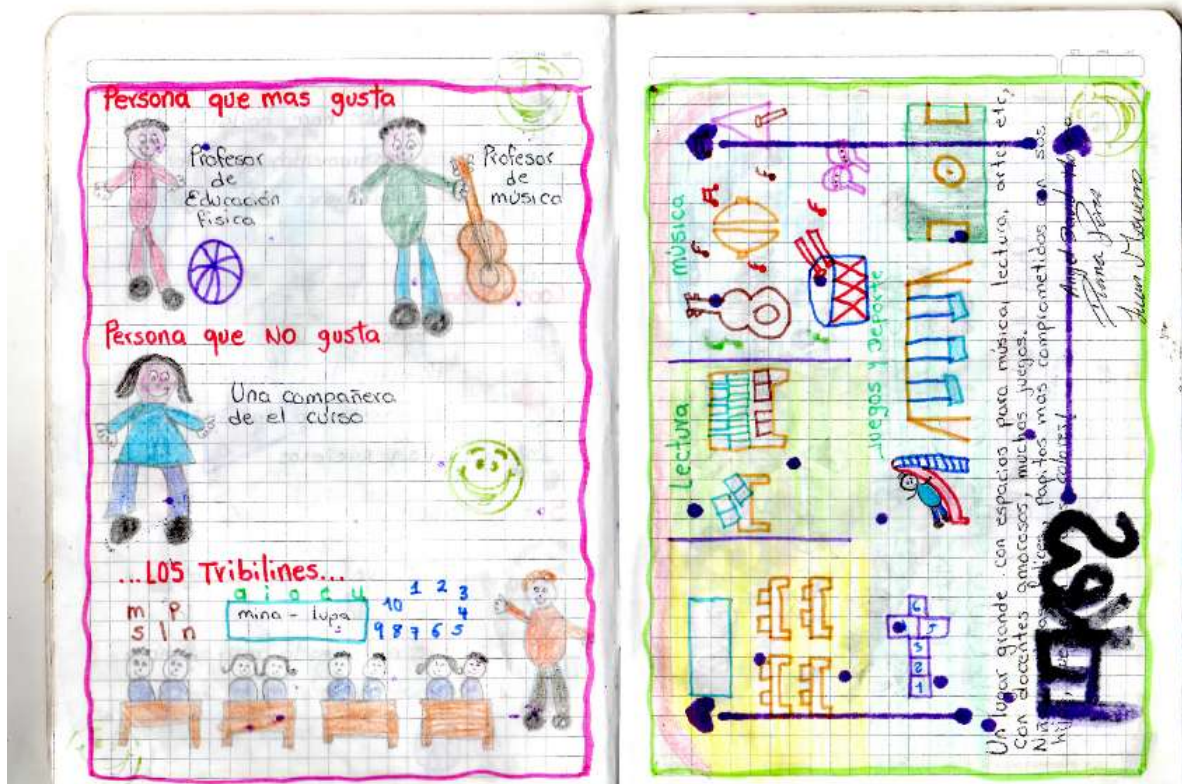 Persona que mas gusta
Profesor
de
Educación
Física
Profesor
de
música
Persona que NO gusta
Una compañera
de el curso
...LOS Tribilines...
a i o e u
m p
s l n
mina - lupa
1 2 3
4
10
9 8 7 6 5
música
Lectura
Juegos y Deporte
1 2 3 5 6
Un lugar grande con espacios para música, lectura, artes etc,
con docentes amorosos, muchos juegos.
felices, Papitos mas comprometidos con sos
Angel David